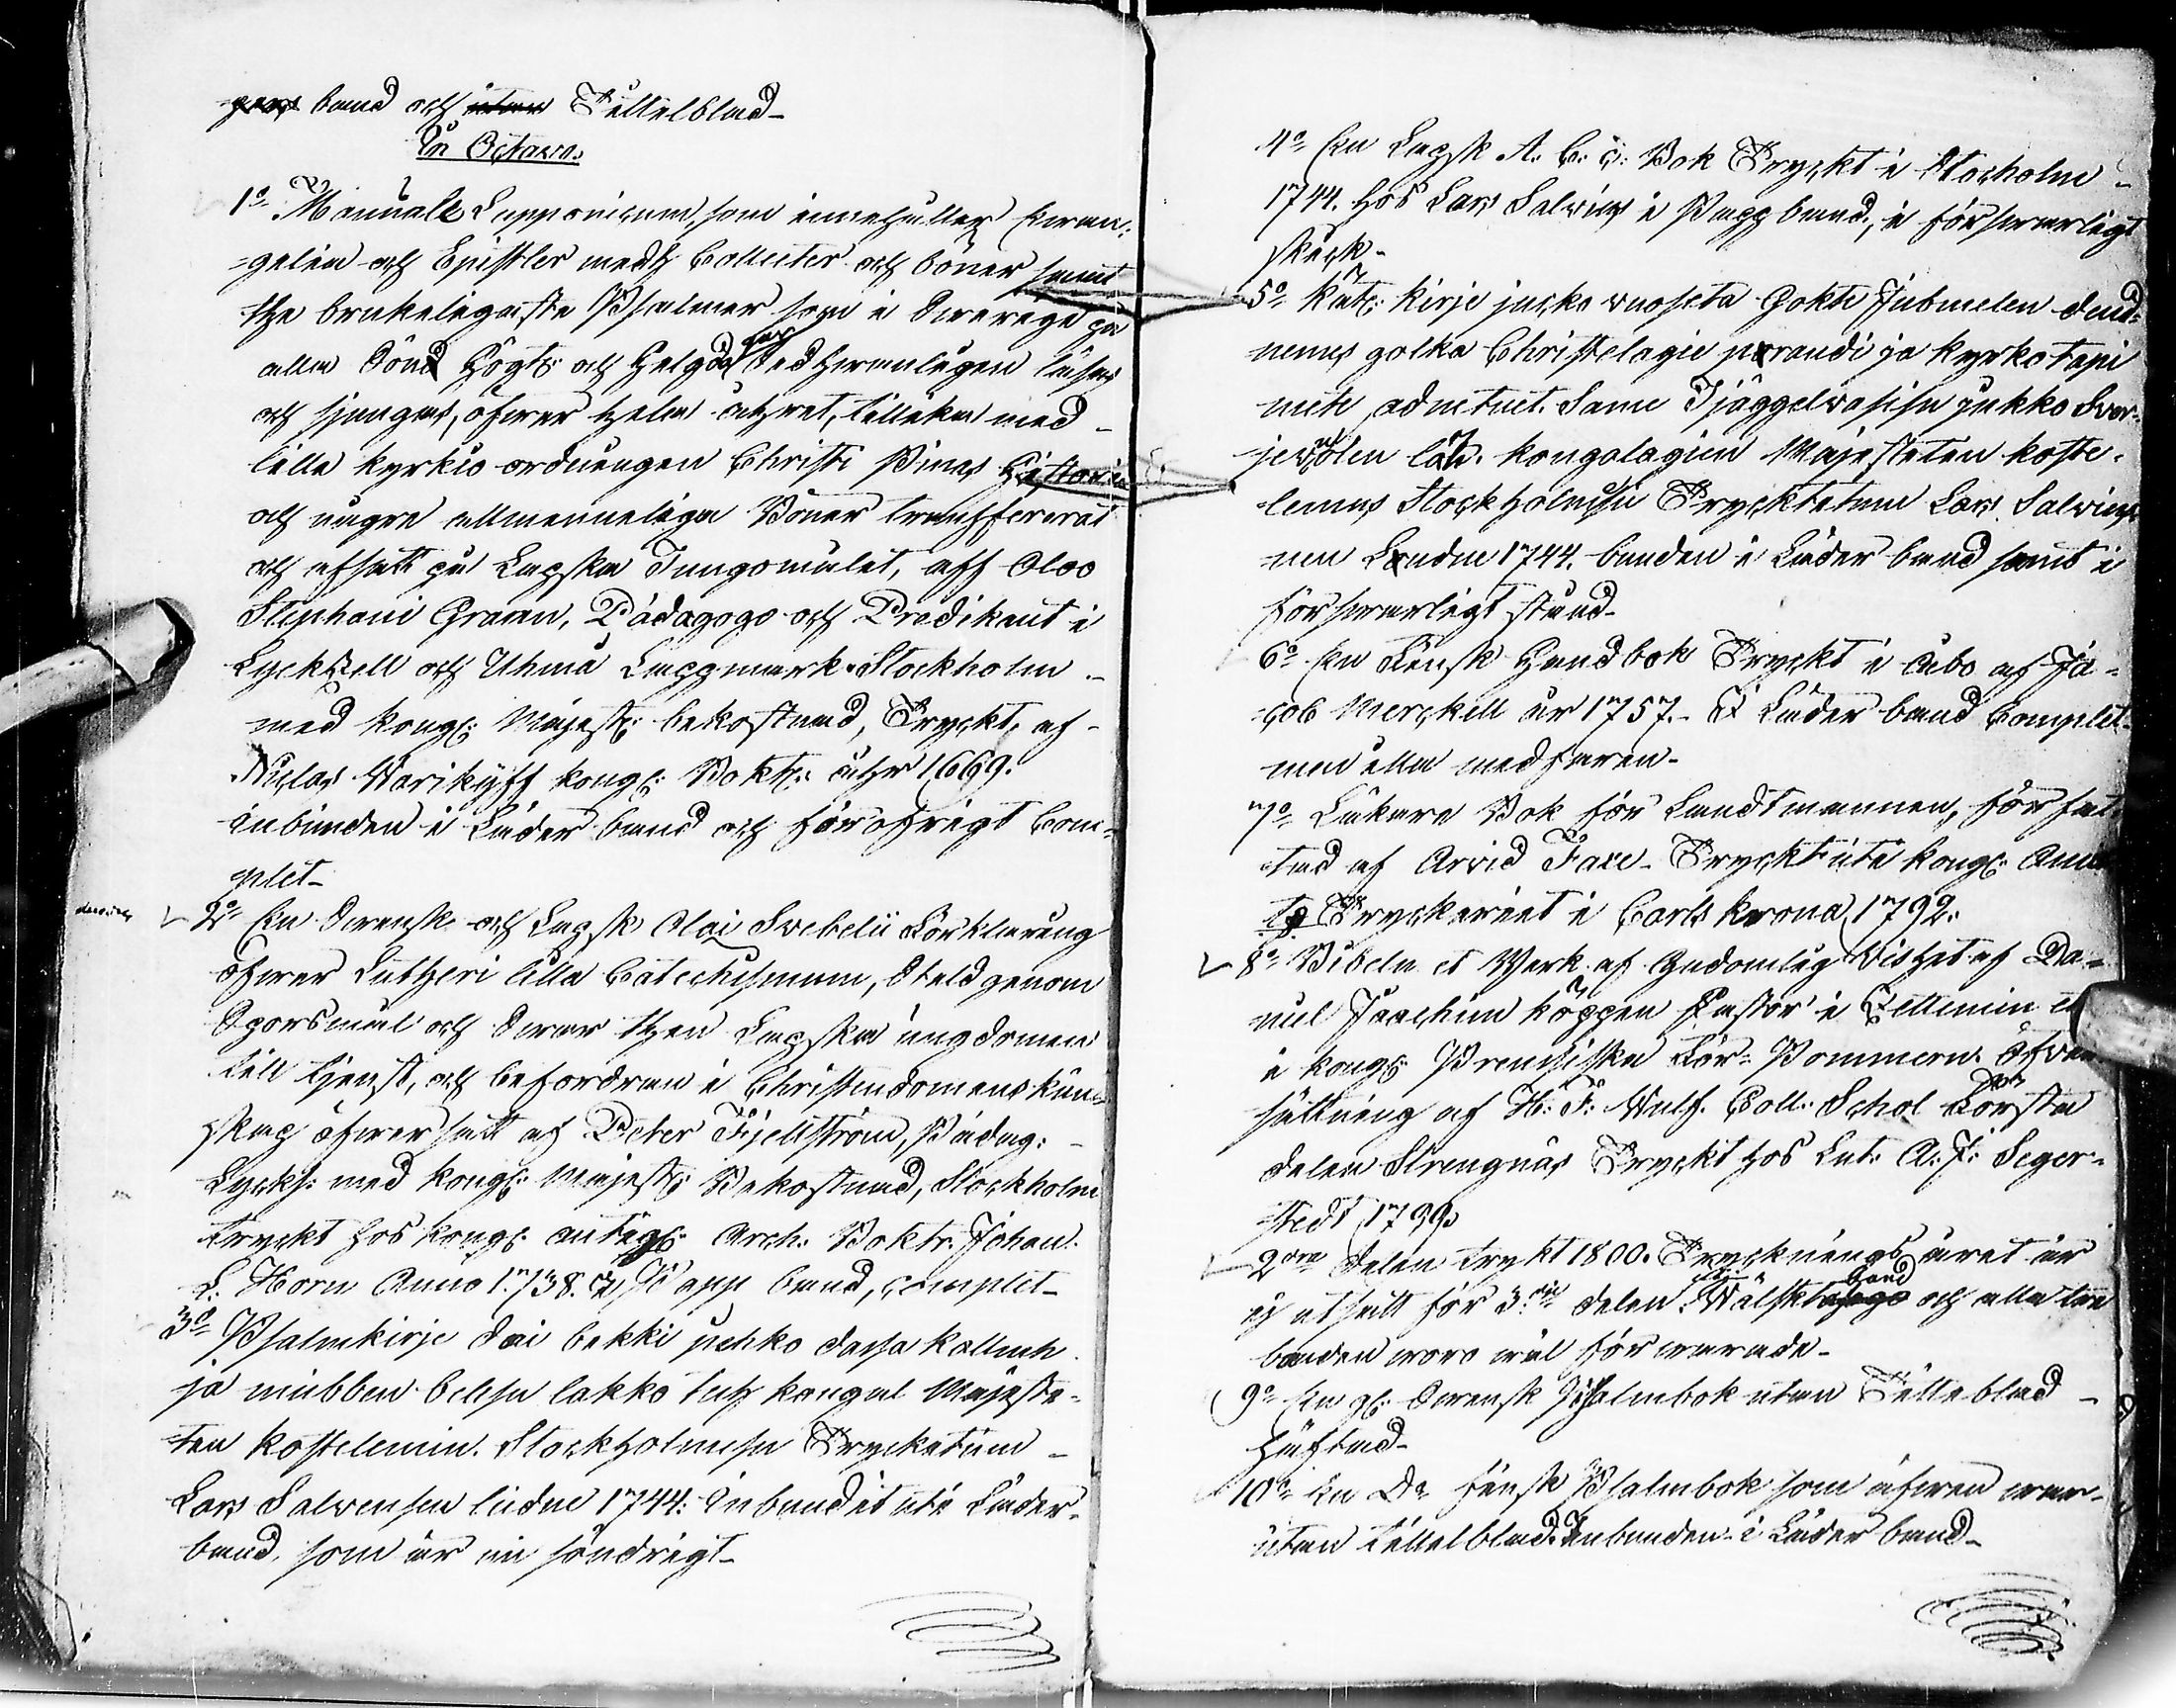 band och Tittelblad
In Octavo.
1o Manuale Lapponicum, som innehåller Ewan-
gelia och Epistler medh Collecter och böner samt
the brukeligaste Psalmer som i Swerege på
alla Sönd Högt: och Helgd Sedhwanligen läses
och sjunges, öfwer hela åhret, tillika med
lilla kyrkio ordningen Christi Pinas Historia
och någre allmenneliga Böner transfererat
och afsatt på Lapska Tungomålet, aff Olao
Stephani Graan, Pädagogo och Predikant i
Lycksell och Uhmå Lappmark. Stockholm
med kongl: Majest: bekostnad, Tryckt, af
Niclas Wankijff kongl: Boktr: åhr 1669.
inbunden i Läder band och för öfrigt Com-
plet
2o En Swensk och Lapsk Olai Swebelii Förklaring
öfwer Lutheri lilla Catechismum, Steld genom
Sporsmål och Swar then Lapska ungdomen
till tjenst, och befordran i Christendomens kün-
skap öfwersatt af Peter Fjellström, Pädag:
Lycks: med kongl: Majest: Bekostnad, Stockholm
tryckt hos kongl: antiqt: Arch: Boktr: Johan
L: Horn Anno 1738. I Papp band, complet
3o Psalmkirje dai bekki pehko dassa kallmh
ja mubben belesn lakko kongal Majeste-
ten kostelemin. Stockholmesn Trycketum
Lars Salvensen ludne 1744: Inbundit uti Läder-
band, som är sondrigt
4o En Lapsk A: B: C: Bok Tryckt i Stocholm
1744. hos Lars Salvius i Papp band, i försvarligt
skick
5o Kät: kirje jacko Gokte Jubmelen
nemes golka Christelagie ja kyrkotapi
mete adnetuet. Same Tjäggelvasisn jukko Sver-
jen län. kongalagien Majesteten koste-
lemes Stockholmesn Trycktetum Lars Salvius
nen Ludne 1744. bunden i Läder band samt i
försvarligt stånd
6o En Finsk Handbok Tryckt i Åbo af Ja-
cob Merckell år 1757. I Läder band Complet
men illa medfaren
7o Läkare Bok för Landtmannen, förfat-
tad af Arvid Faxe. Tryckt uti kongl: Ami-
ts Tryckeriet i Carlskrona, 1792.
8o Bibeln et Werk af Gudomlig Wishet af Da-
niel Joachim Köppen Pastor i Zettemin
i kongl: Preussiska För-Pommern. Öfver
sättning af H: F: Wulf. Coll: Schol Första
delen Strengnäs Tryckt hos Lut: A: J: Seger-
stedt 1799
2ora delen trykt 1800. Trycknings året är
ej utsatt för 3dje delen. Wälskt band och alla tre
banden woro wäl förwarade
9o En gl: Swensk Psalmbok utan Titteblad
häftad
10o En Do finsk Psalmbok som äfwen war
utan tittelblad. Inbunden i Läder band